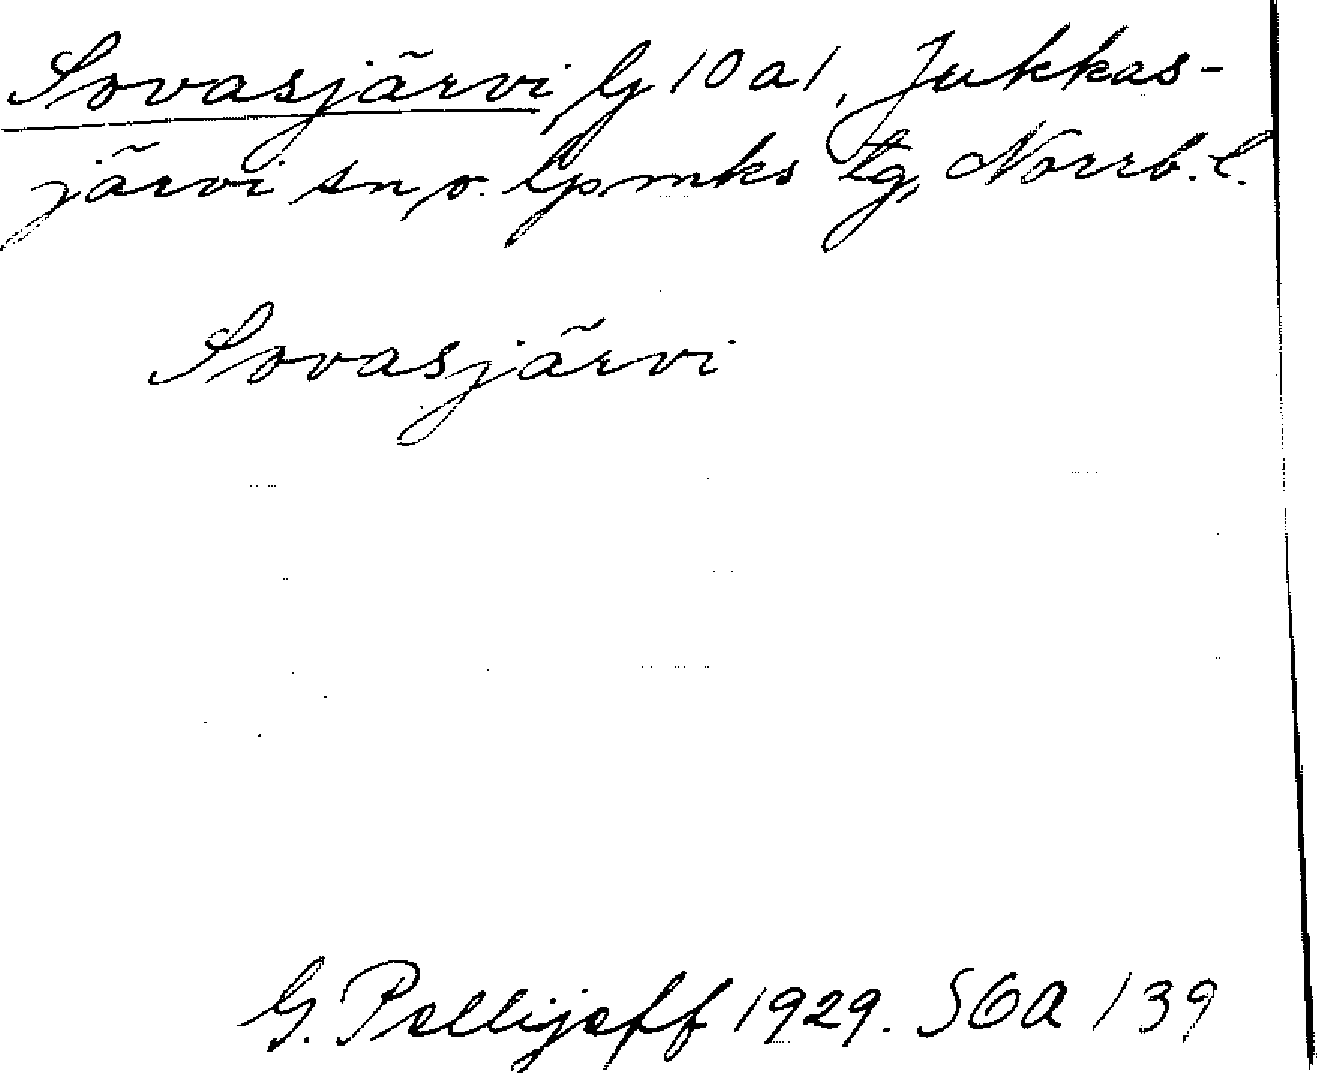 Sovasjärvi G 10 a 1, Jukkas-
järvi sn o. lpmks tg, Norrb. l.
Sovasjärvi
G. Pellijeff 1929. SGA 139